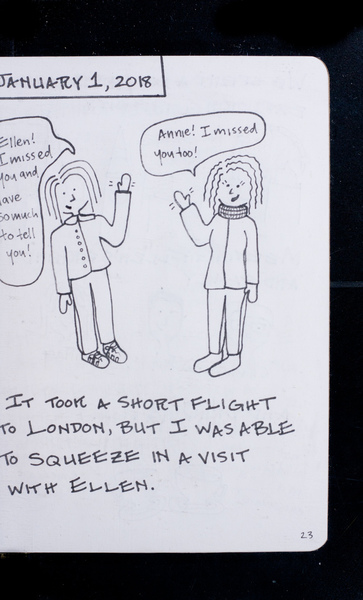 JANUARY 1, 2018
Ellen!
I missed
you and
have
so much
to tell
you!
Annie! I missed
you too!
IT TOOK A SHORT FLIGHT
TO LONDON, BUT I WAS ABLE
TO SQUEEZE IN A VISIT
WITH ELLEN.
23